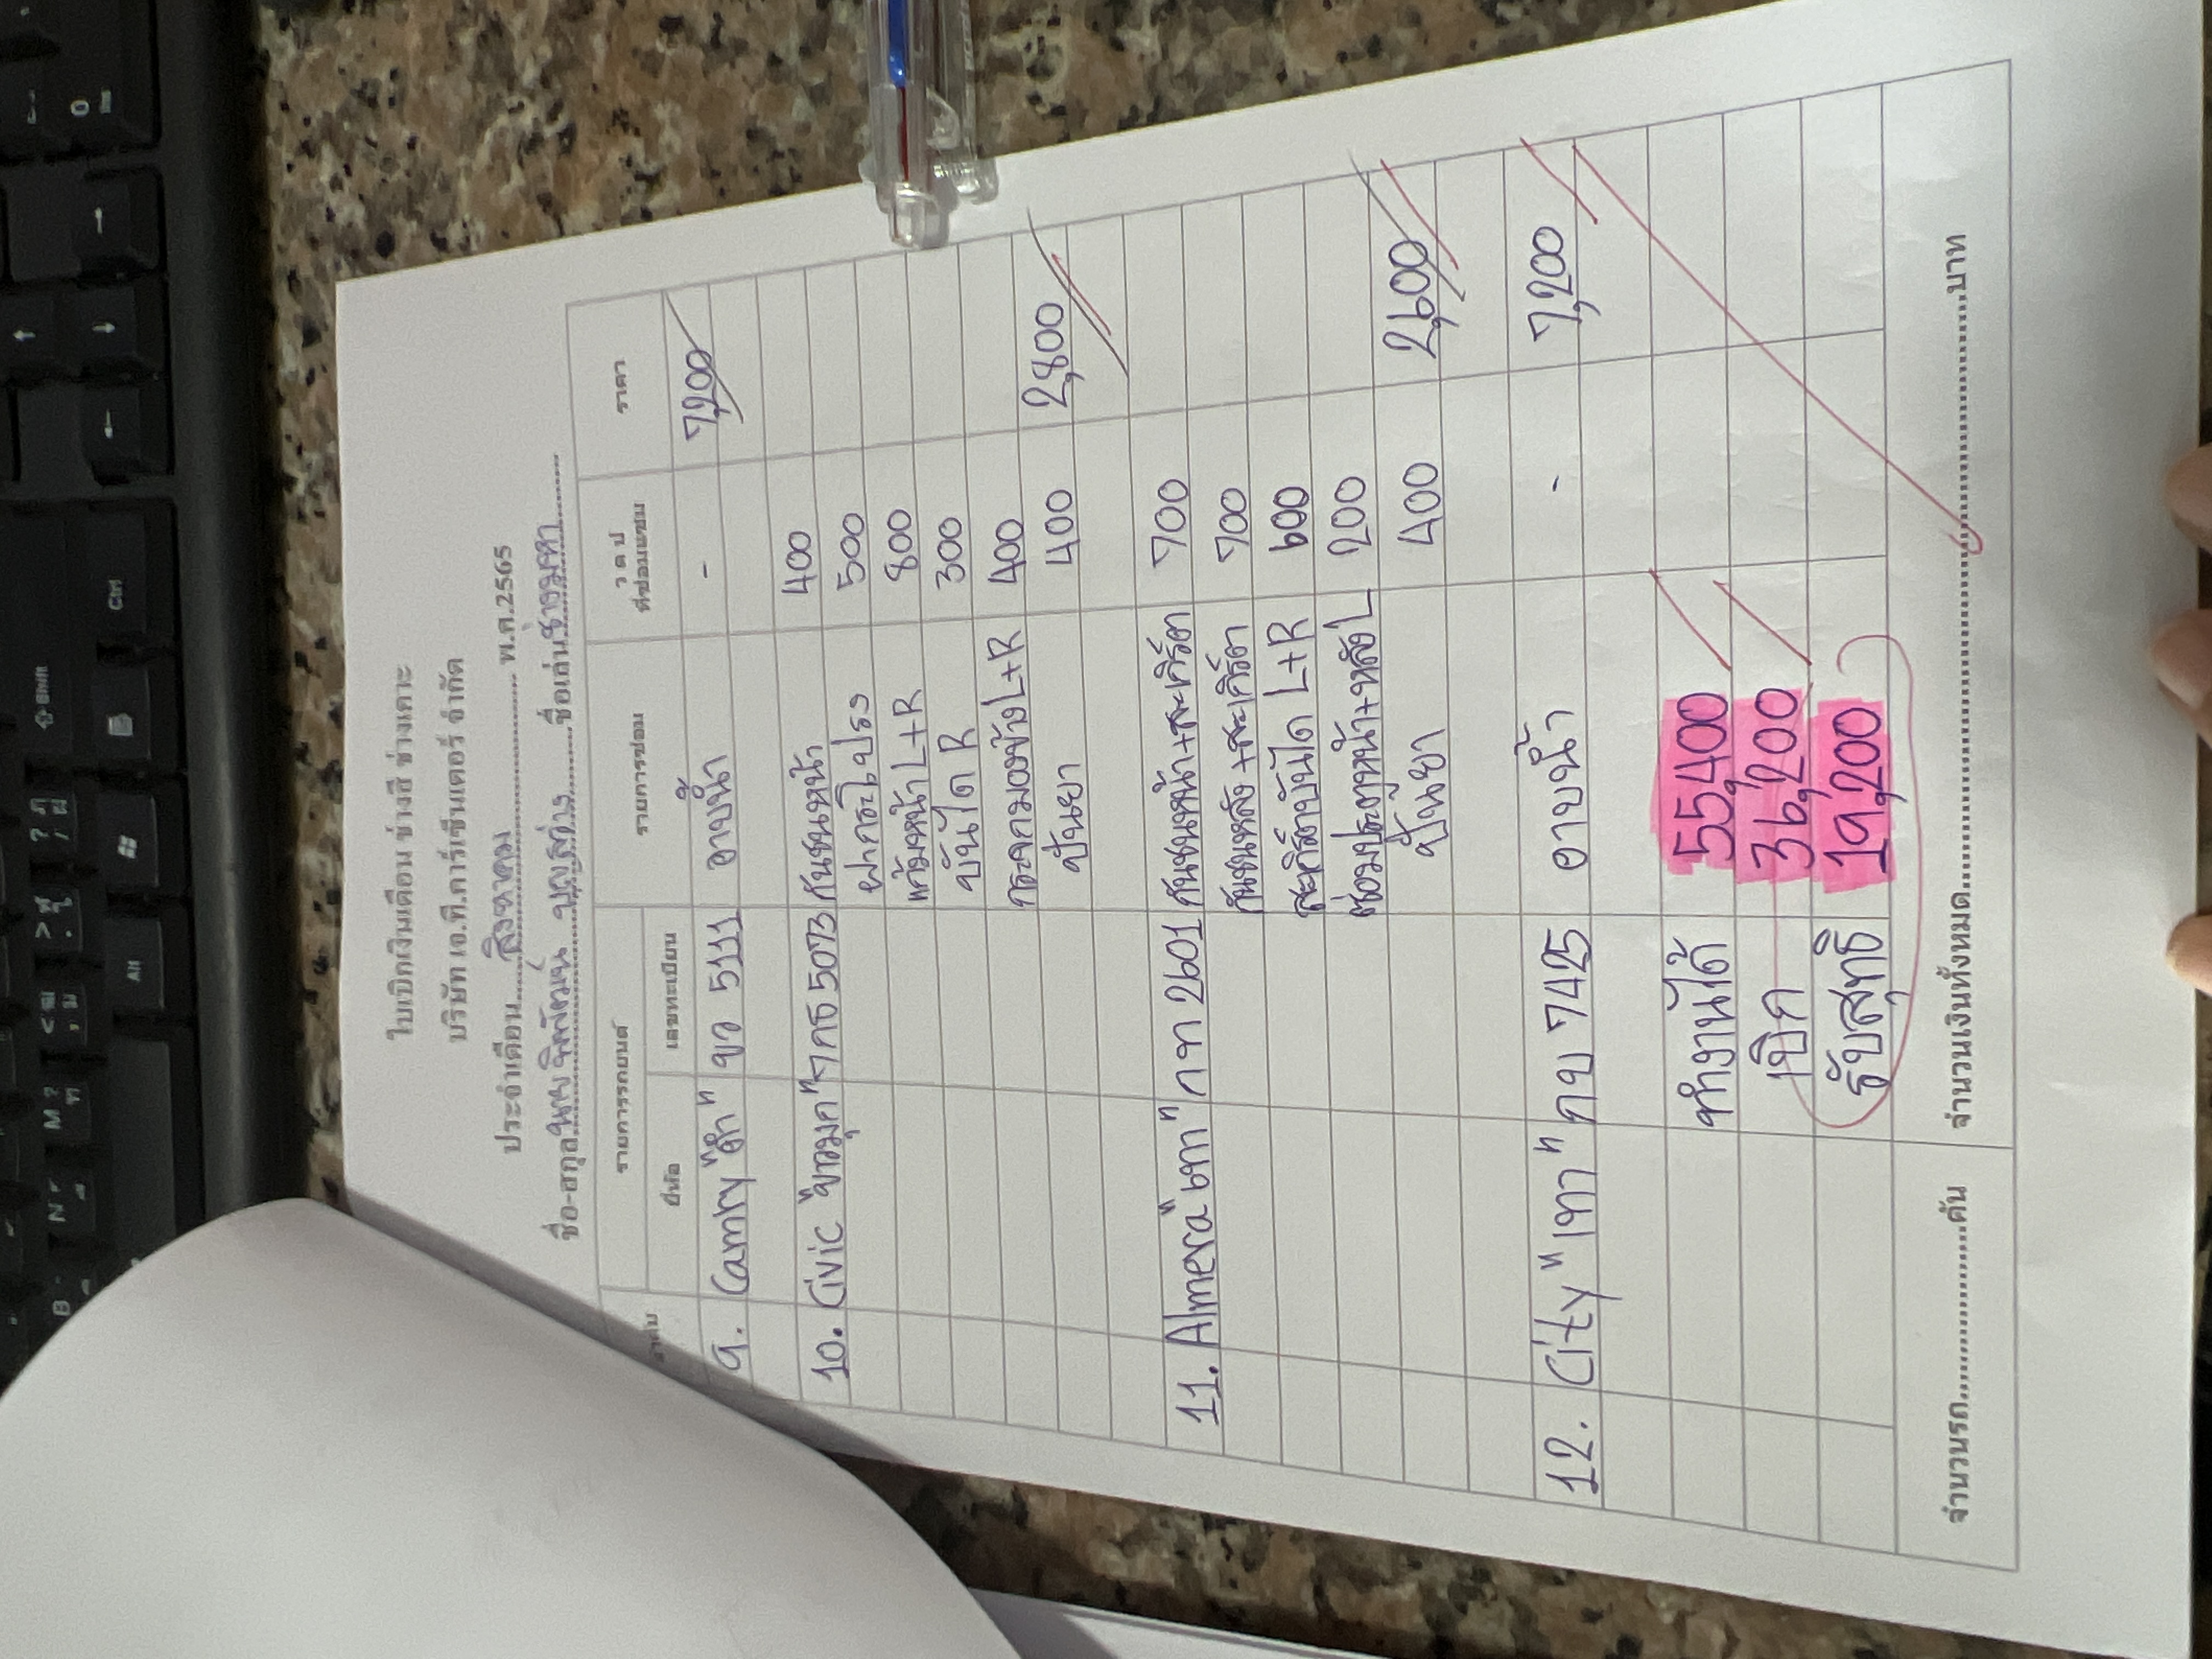 ใบเบิกเงินเดือน ช่างสี ช่างเคาะ
บริษัท เอ.ที.คาร์เซ็นเตอร์ จำกัด
ประจำเดือน....สิงหาคม.... พ.ศ.2565
ชื่อ-สกุล ชื่อเล่น ช่างมหา
ลำดับ รายการรถยนต์ รายการซ่อม ว ด ป ที่ซ่อมแซม ราคา
ยี่ห้อ เลขทะเบียน
9. Camry "ดำ" ขว 5111 อาบน้ำ - 7,200
10. Civic "ขาวมุก" 1กธ 5073 กันชนหน้า 400
ฝากระโปรง 500
แก้มหน้า L+R 800
บันได R 300
กระจกมองข้าง L+R 400 2,800
ปั่นยา 400
11. Almera "เทา" กท 2601 กันชนหน้า+สเกิร์ต 700
กันชนหลัง+สเกิร์ต 700
สเกิร์ตบันได L+R 600
ซ่อมประตูหน้า+หลัง L 200
ปั่นยา 400 2,600
12. City "เทา" กบ 7425 อาบน้ำ - 7,200
ทำงานได้ 55,400
เบิก 36,200
รับสุทธิ 19,200
จำนวนรถ....................คัน จำนวนเงินทั้งหมด....................บาท